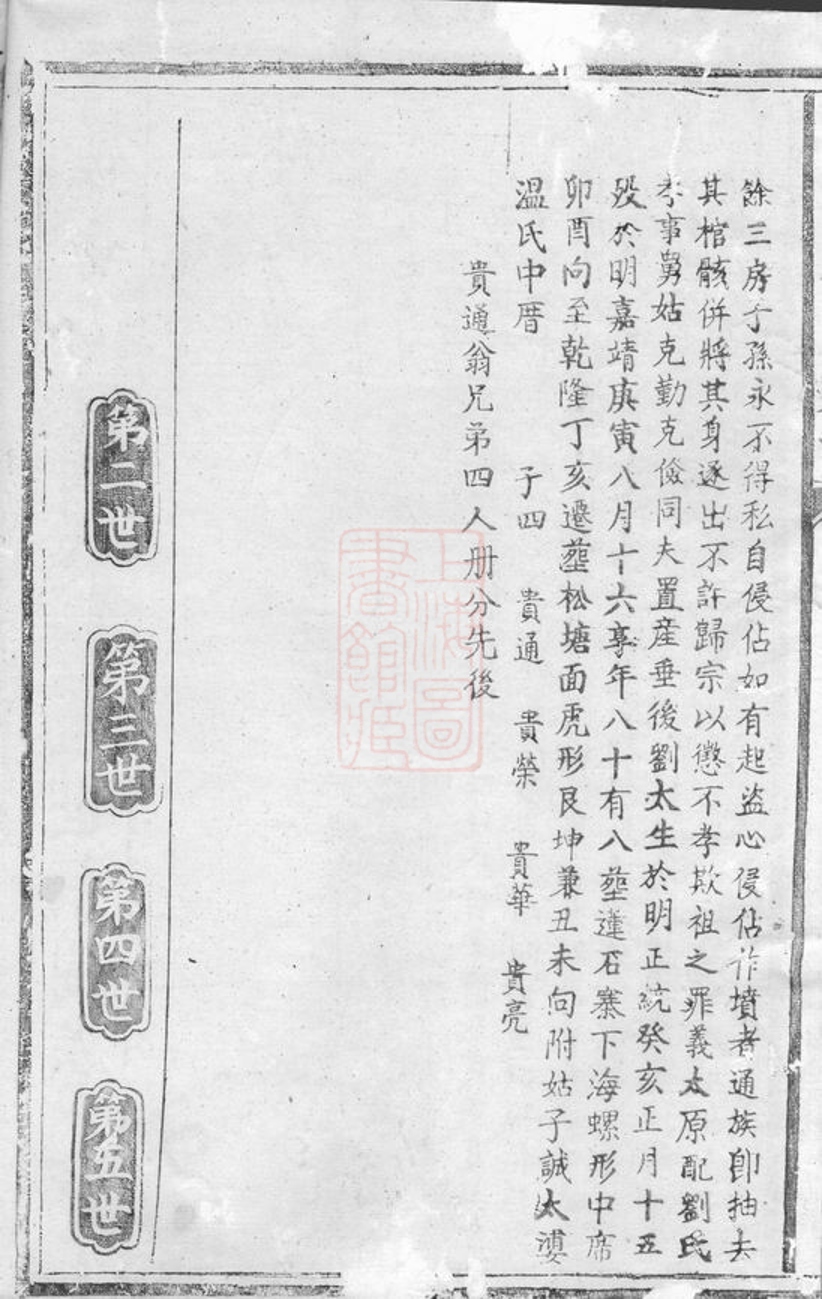 餘三房子孫永不得私自侵佔如有起盜心侵佔作墳者通族卽抽去
其棺骸併將其身逐出不許歸宗以懲不孝欺祖之罪義太原配劉氏
孝事舅姑克勤克儉同夫置產垂後劉太生於明正統癸亥正月十五
歿於明嘉靖庚寅八月十六享年八十有八塟蓮石寨下海螺形中席
卯酉向至乾隆丁亥遷塟松塘面虎形艮坤兼丑未向附姑子誠太婆
溫氏中厝 子四 貴通 貴榮 貴華 貴亮
貴通翁兄弟四人册分先後
第二世 第三世 第四世 第五世
上海圖
書館藏